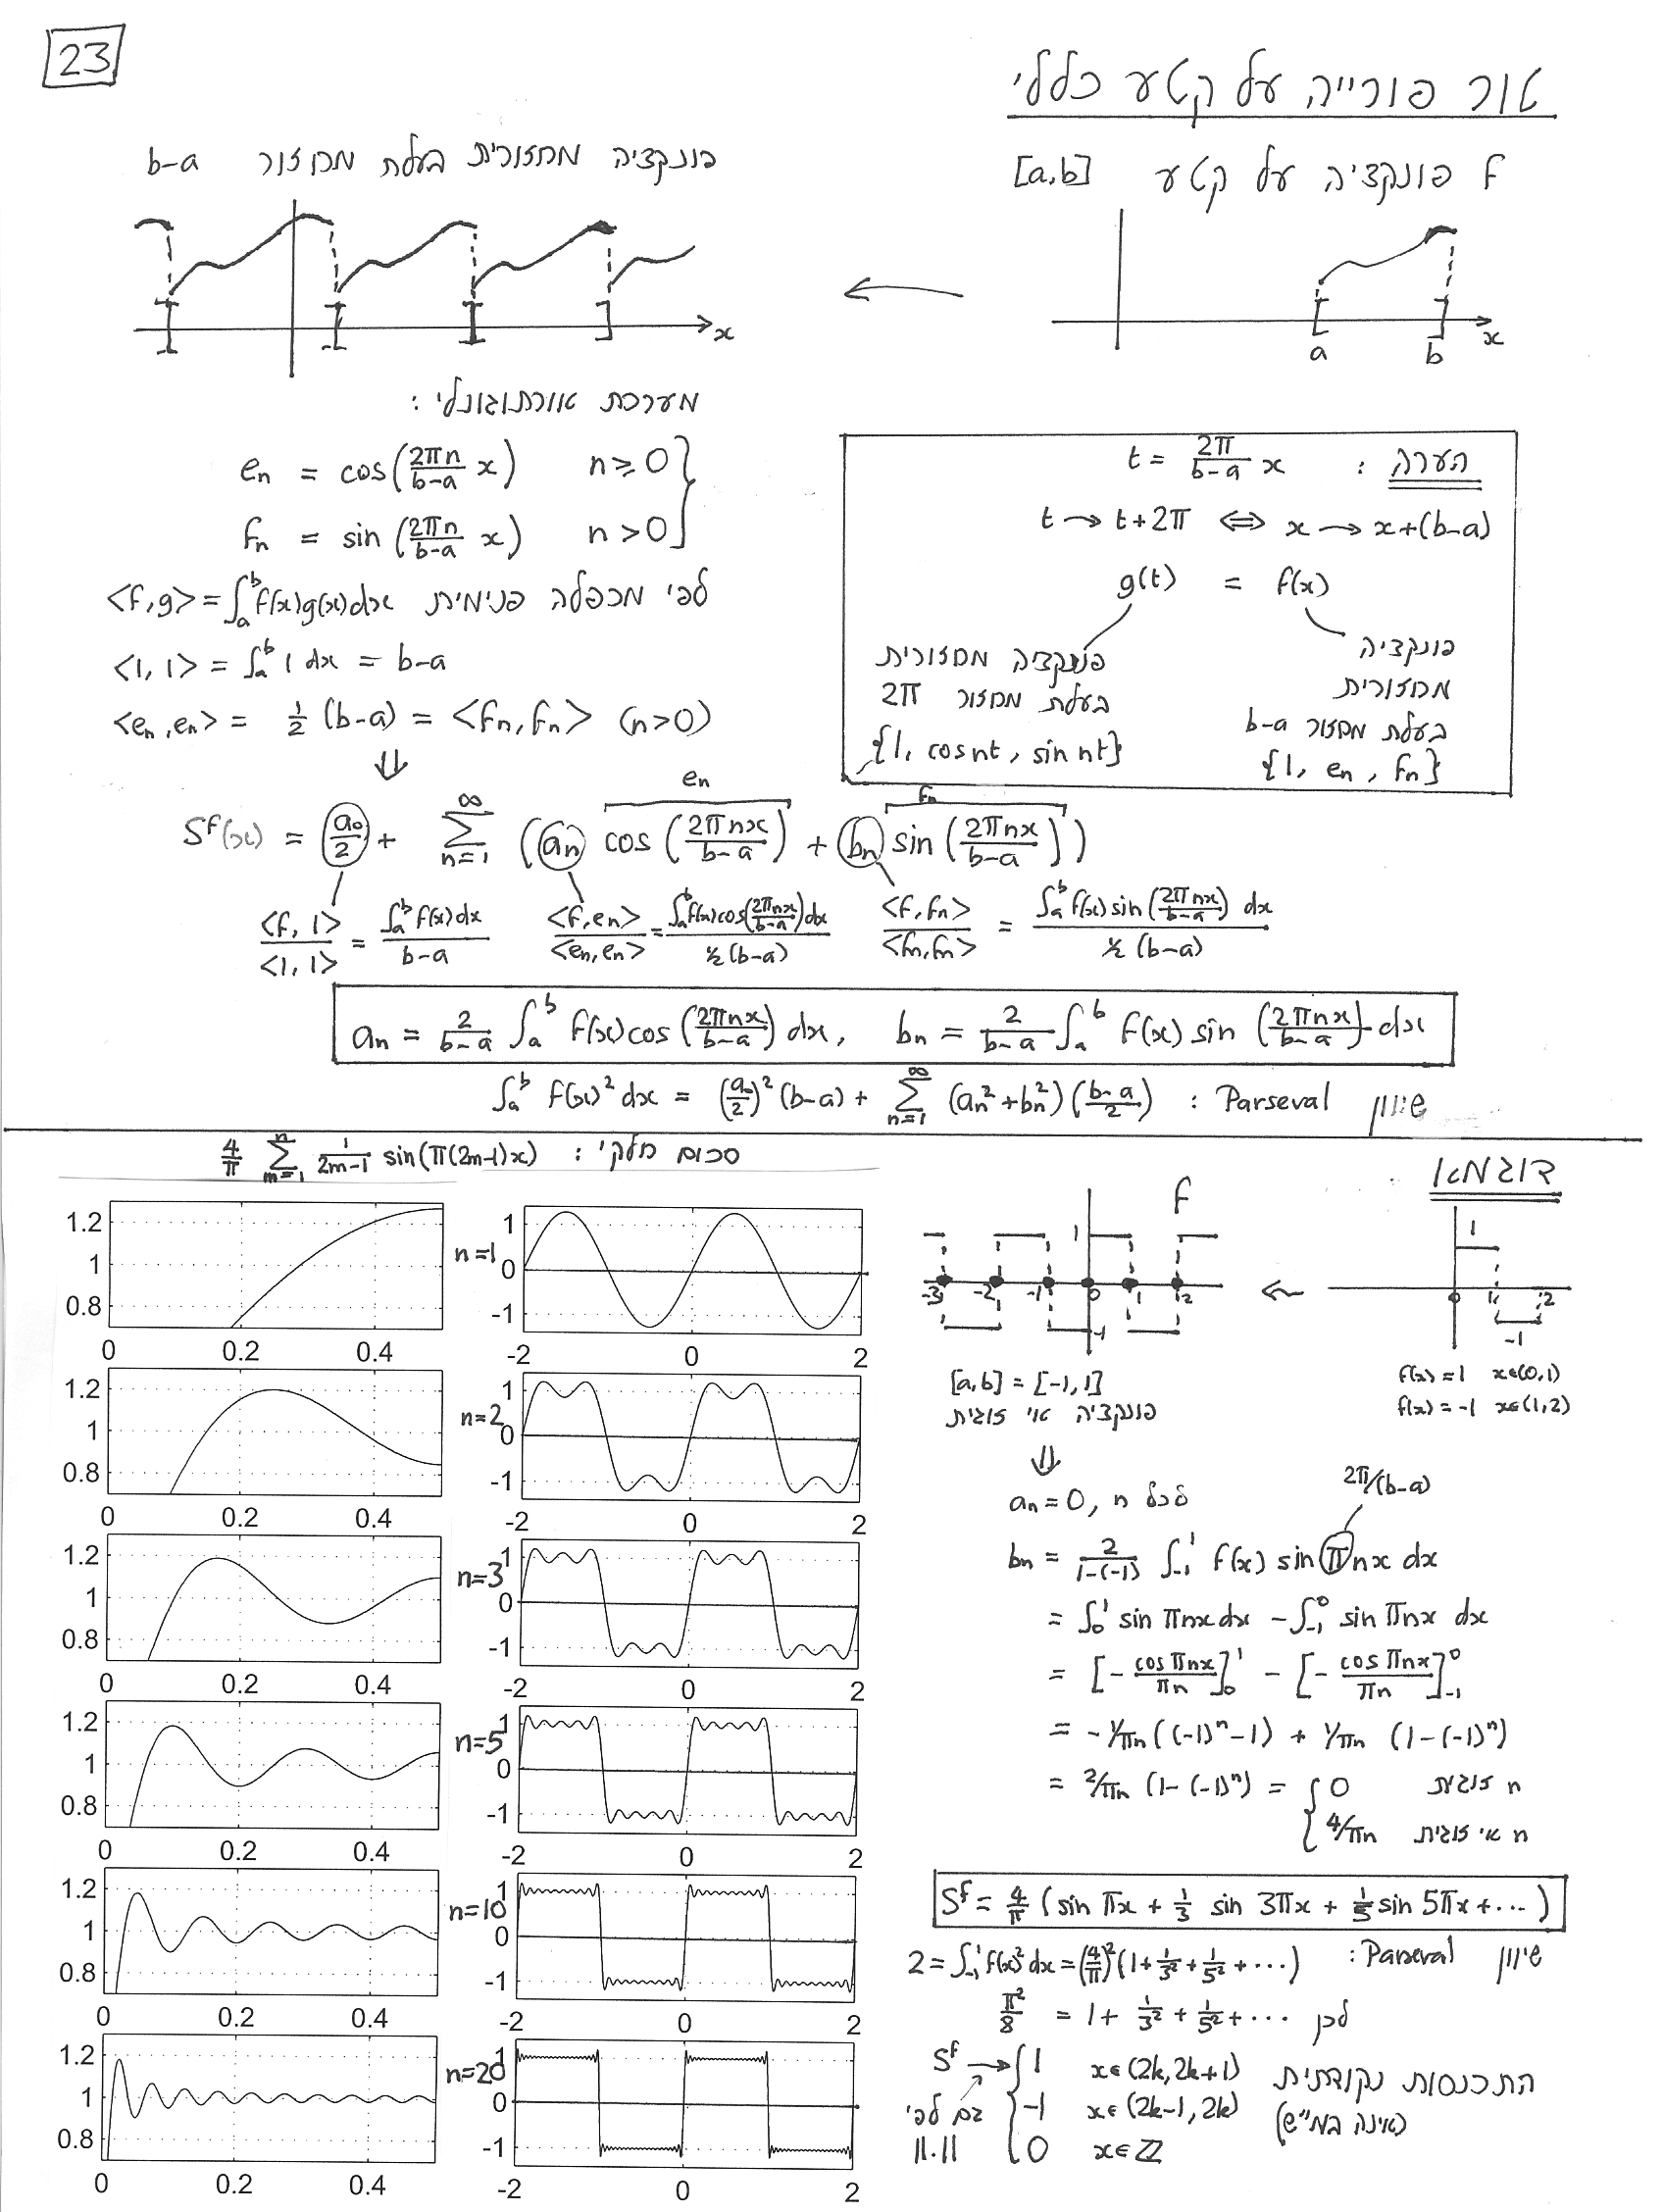 23
טור פורייה על קטע כללי
f פונקציה על קטע [a,b]
פונקציה מחזורית בעלת מחזור b-a
x
a b x
מערכת אורתוגונלי :
e_n = cos(2πn/(b-a) x) n≥0
f_n = sin(2πn/(b-a) x) n>0
<f,g> = ∫_a^b f(x)g(x)dx לפי מכפלה פנימית
<1,1> = ∫_a^b 1 dx = b-a
<e_n,e_n> = 1/2 (b-a) = <f_n,f_n> (n>0)
⇓
הערה : t = 2π/(b-a) x
t → t+2π ⇔ x → x+(b-a)
g(t) = f(x)
פונקציה מחזורית
בעלת מחזור 2π
{1, cos nt, sin nt}
פונקציה
מחזורית
בעלת מחזור b-a
{1, e_n, f_n}
e_n f_n
S^f(x) = a_0/2 + Σ_{n=1}^∞ (a_n cos(2πnx/(b-a)) + b_n sin(2πnx/(b-a)))
<f,1>/<1,1> = ∫_a^b f(x)dx/(b-a) <f,e_n>/<e_n,e_n> = ∫_a^b f(x)cos(2πnx/(b-a))dx/(½(b-a)) <f,f_n>/<f_n,f_n> = ∫_a^b f(x)sin(2πnx/(b-a)) dx/(½(b-a))
a_n = 2/(b-a) ∫_a^b f(x)cos(2πnx/(b-a)) dx, b_n = 2/(b-a) ∫_a^b f(x) sin(2πnx/(b-a)) dx
שיוון Parseval : ∫_a^b f(x)² dx = (a_0/2)² (b-a) + Σ_{n=1}^∞ (a_n²+b_n²)((b-a)/2)
סכום חלקי : 4/π Σ_{m=1}^n 1/(2m-1) sin(π(2m-1)x)
1.2 1 0.8 0 0.2 0.4 n=1 1 0 -1 -2 0 2
1.2 1 0.8 0 0.2 0.4 n=2 1 0 -1 -2 0 2
1.2 1 0.8 0 0.2 0.4 n=3 1 0 -1 -2 0 2
1.2 1 0.8 0 0.2 0.4 n=5 1 0 -1 -2 0 2
1.2 1 0.8 0 0.2 0.4 n=10 1 0 -1 -2 0 2
1.2 1 0.8 0 0.2 0.4 n=20 1 0 -1 -2 0 2
דוגמא
1 0 1 2 -1
f(x)=1 x∈(0,1)
f(x)=-1 x∈(1,2)
f
1 -3 -2 -1 0 1 2 -1
[a,b] = [-1,1]
פונקציה אי זוגית
⇓
a_n = 0, לכל n
2π/(b-a)
b_n = 2/(1-(-1)) ∫_{-1}^1 f(x) sin πnx dx
= ∫_0^1 sin πnx dx - ∫_{-1}^0 sin πnx dx
= [- cos πnx/πn]_0^1 - [- cos πnx/πn]_{-1}^0
= -1/πn ((-1)^n - 1) + 1/πn (1-(-1)^n)
= 2/πn (1-(-1)^n) = { 0 n זוגית
4/πn n אי זוגית
S^f = 4/π (sin πx + 1/3 sin 3πx + 1/5 sin 5πx + ⋯)
שיוון Parseval : 2 = ∫_{-1}^1 f(x)² dx = (4/π)² (1 + 1/3² + 1/5² + ⋯)
לכן π²/8 = 1 + 1/3² + 1/5² + ⋯
התכנסות נקודתית
(אינה במ"ש)
S^f → { 1 x∈(2k,2k+1)
-1 x∈(2k-1,2k)
0 x∈ℤ
גם לפי
11.11